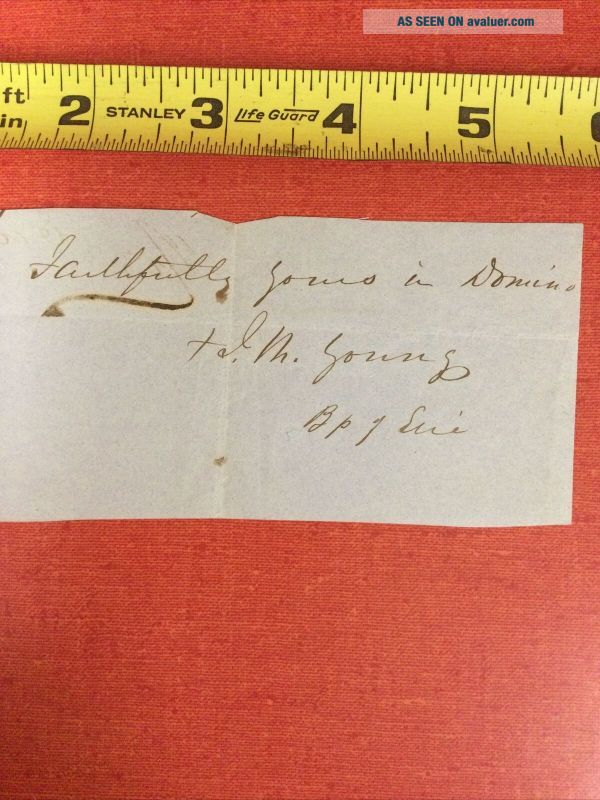 AS SEEN ON avaluer.com
ft
in 2 STANLEY 3 Life Guard 4 5 6
Faithfully yours in Domino
+ J. M. Young
Bp of Erie